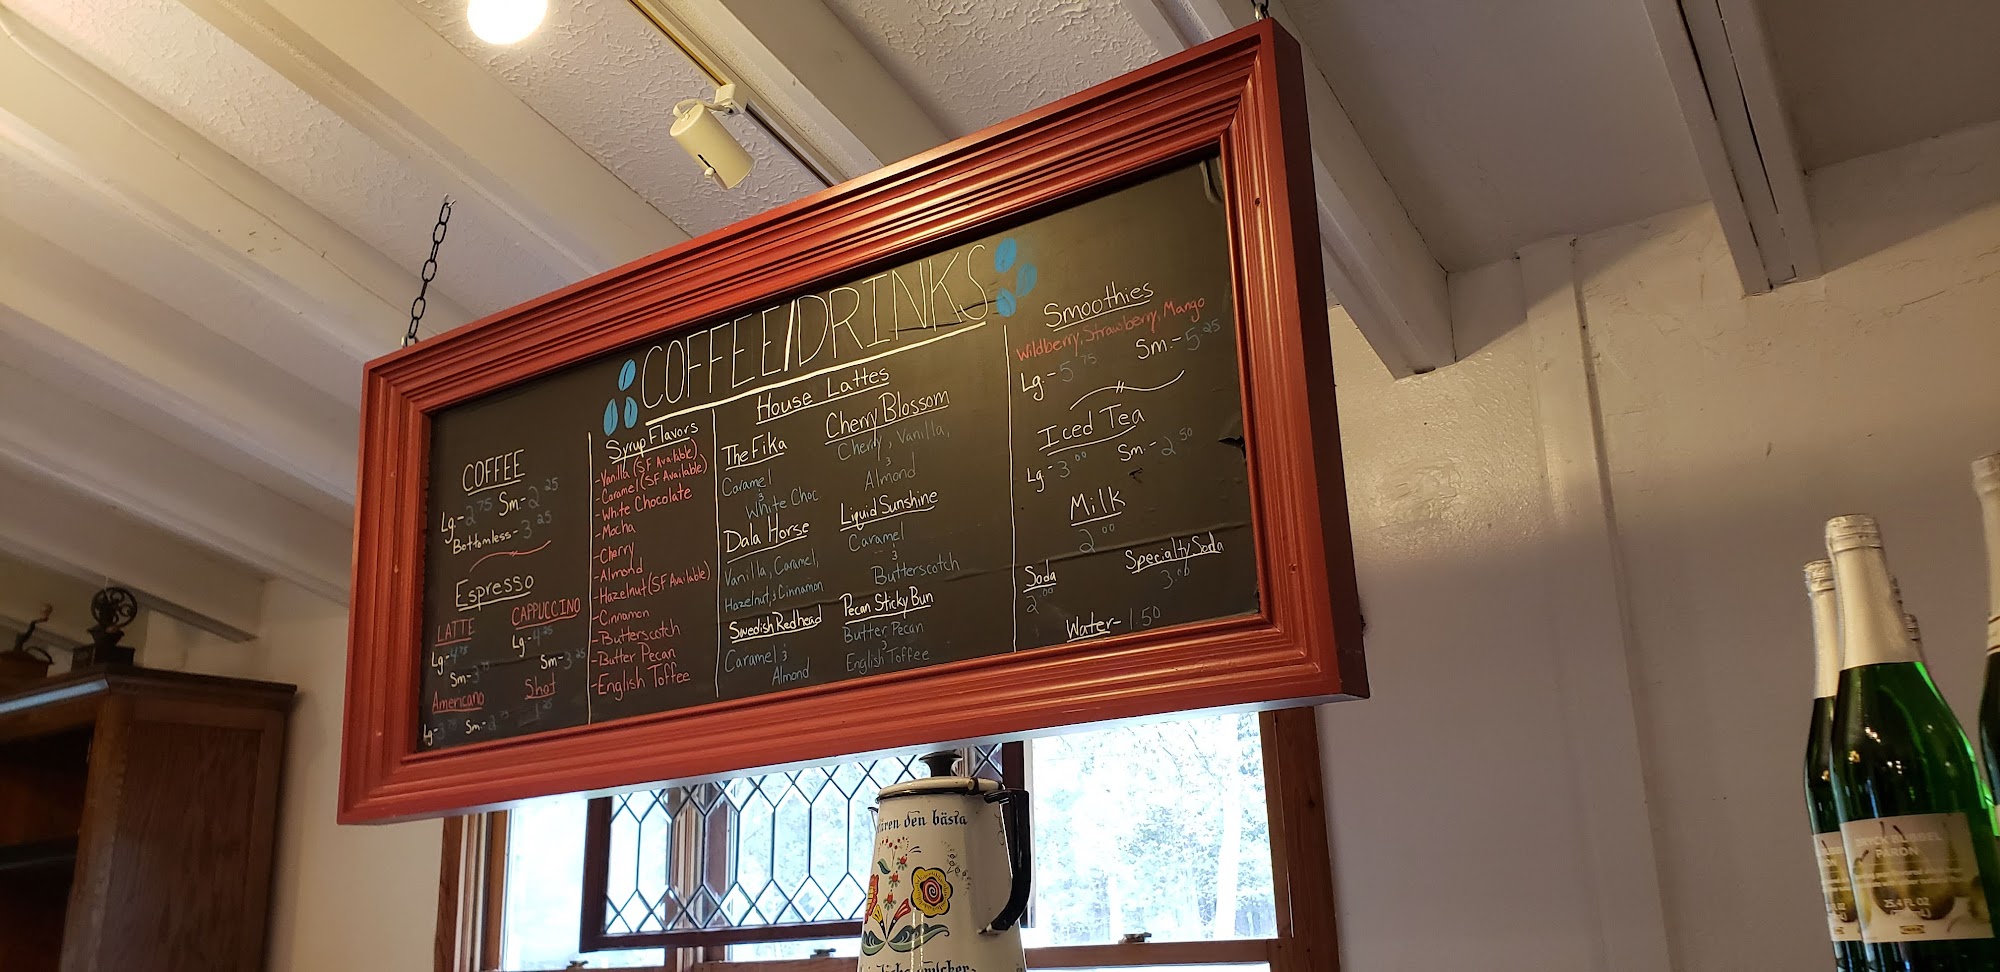 COFFEE/DRINKS
COFFEE
Lg.-2.75 Sm.-2.25
Bottomless-3.25
Espresso
LATTE
Lg-4.75
Sm-3.75
CAPPUCCINO
Lg-4.25
Sm-3.25
Americano
Lg-3.75 Sm-
Shot
1.25
Syrup Flavors
-Vanilla (SF Available)
-Caramel (SF Available)
-White Chocolate
-Mocha
-Cherry
-Almond
-Hazelnut (SF Available)
-Cinnamon
-Butterscotch
-Butter Pecan
-English Toffee
House Lattes
The Fika
Caramel
&
White Choc.
Dala Horse
Vanilla, Caramel,
Hazelnut, & Cinnamon
Swedish Redhead
Caramel &
Almond
Cherry Blossom
Cherry, Vanilla,
&
Almond
Liquid Sunshine
Caramel
&
Butterscotch
Pecan Sticky Bun
Butter Pecan
&
English Toffee
Smoothies
Wildberry, Strawberry, Mango
Lg.-5.75 Sm.-5.25
Iced Tea
Lg-3.00 Sm.-2.50
Milk
2.00
Soda
2.00
Specialty Soda
3.00
Water-1.50
den bästa
PÄRON
25.4 FL OZ